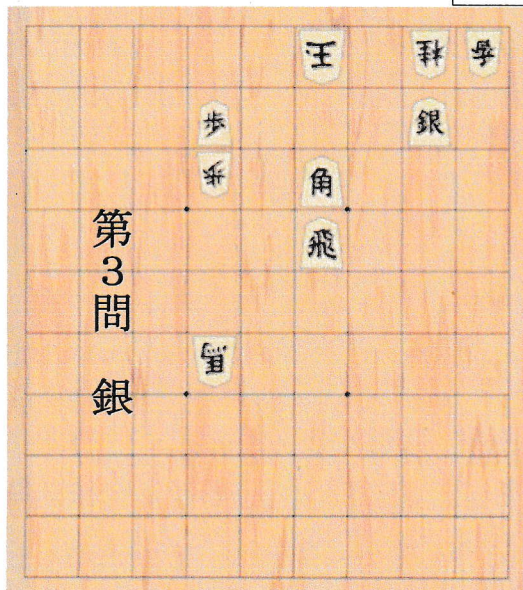 王 桂 香
歩 銀
歩 角
飛
馬
第3問 銀